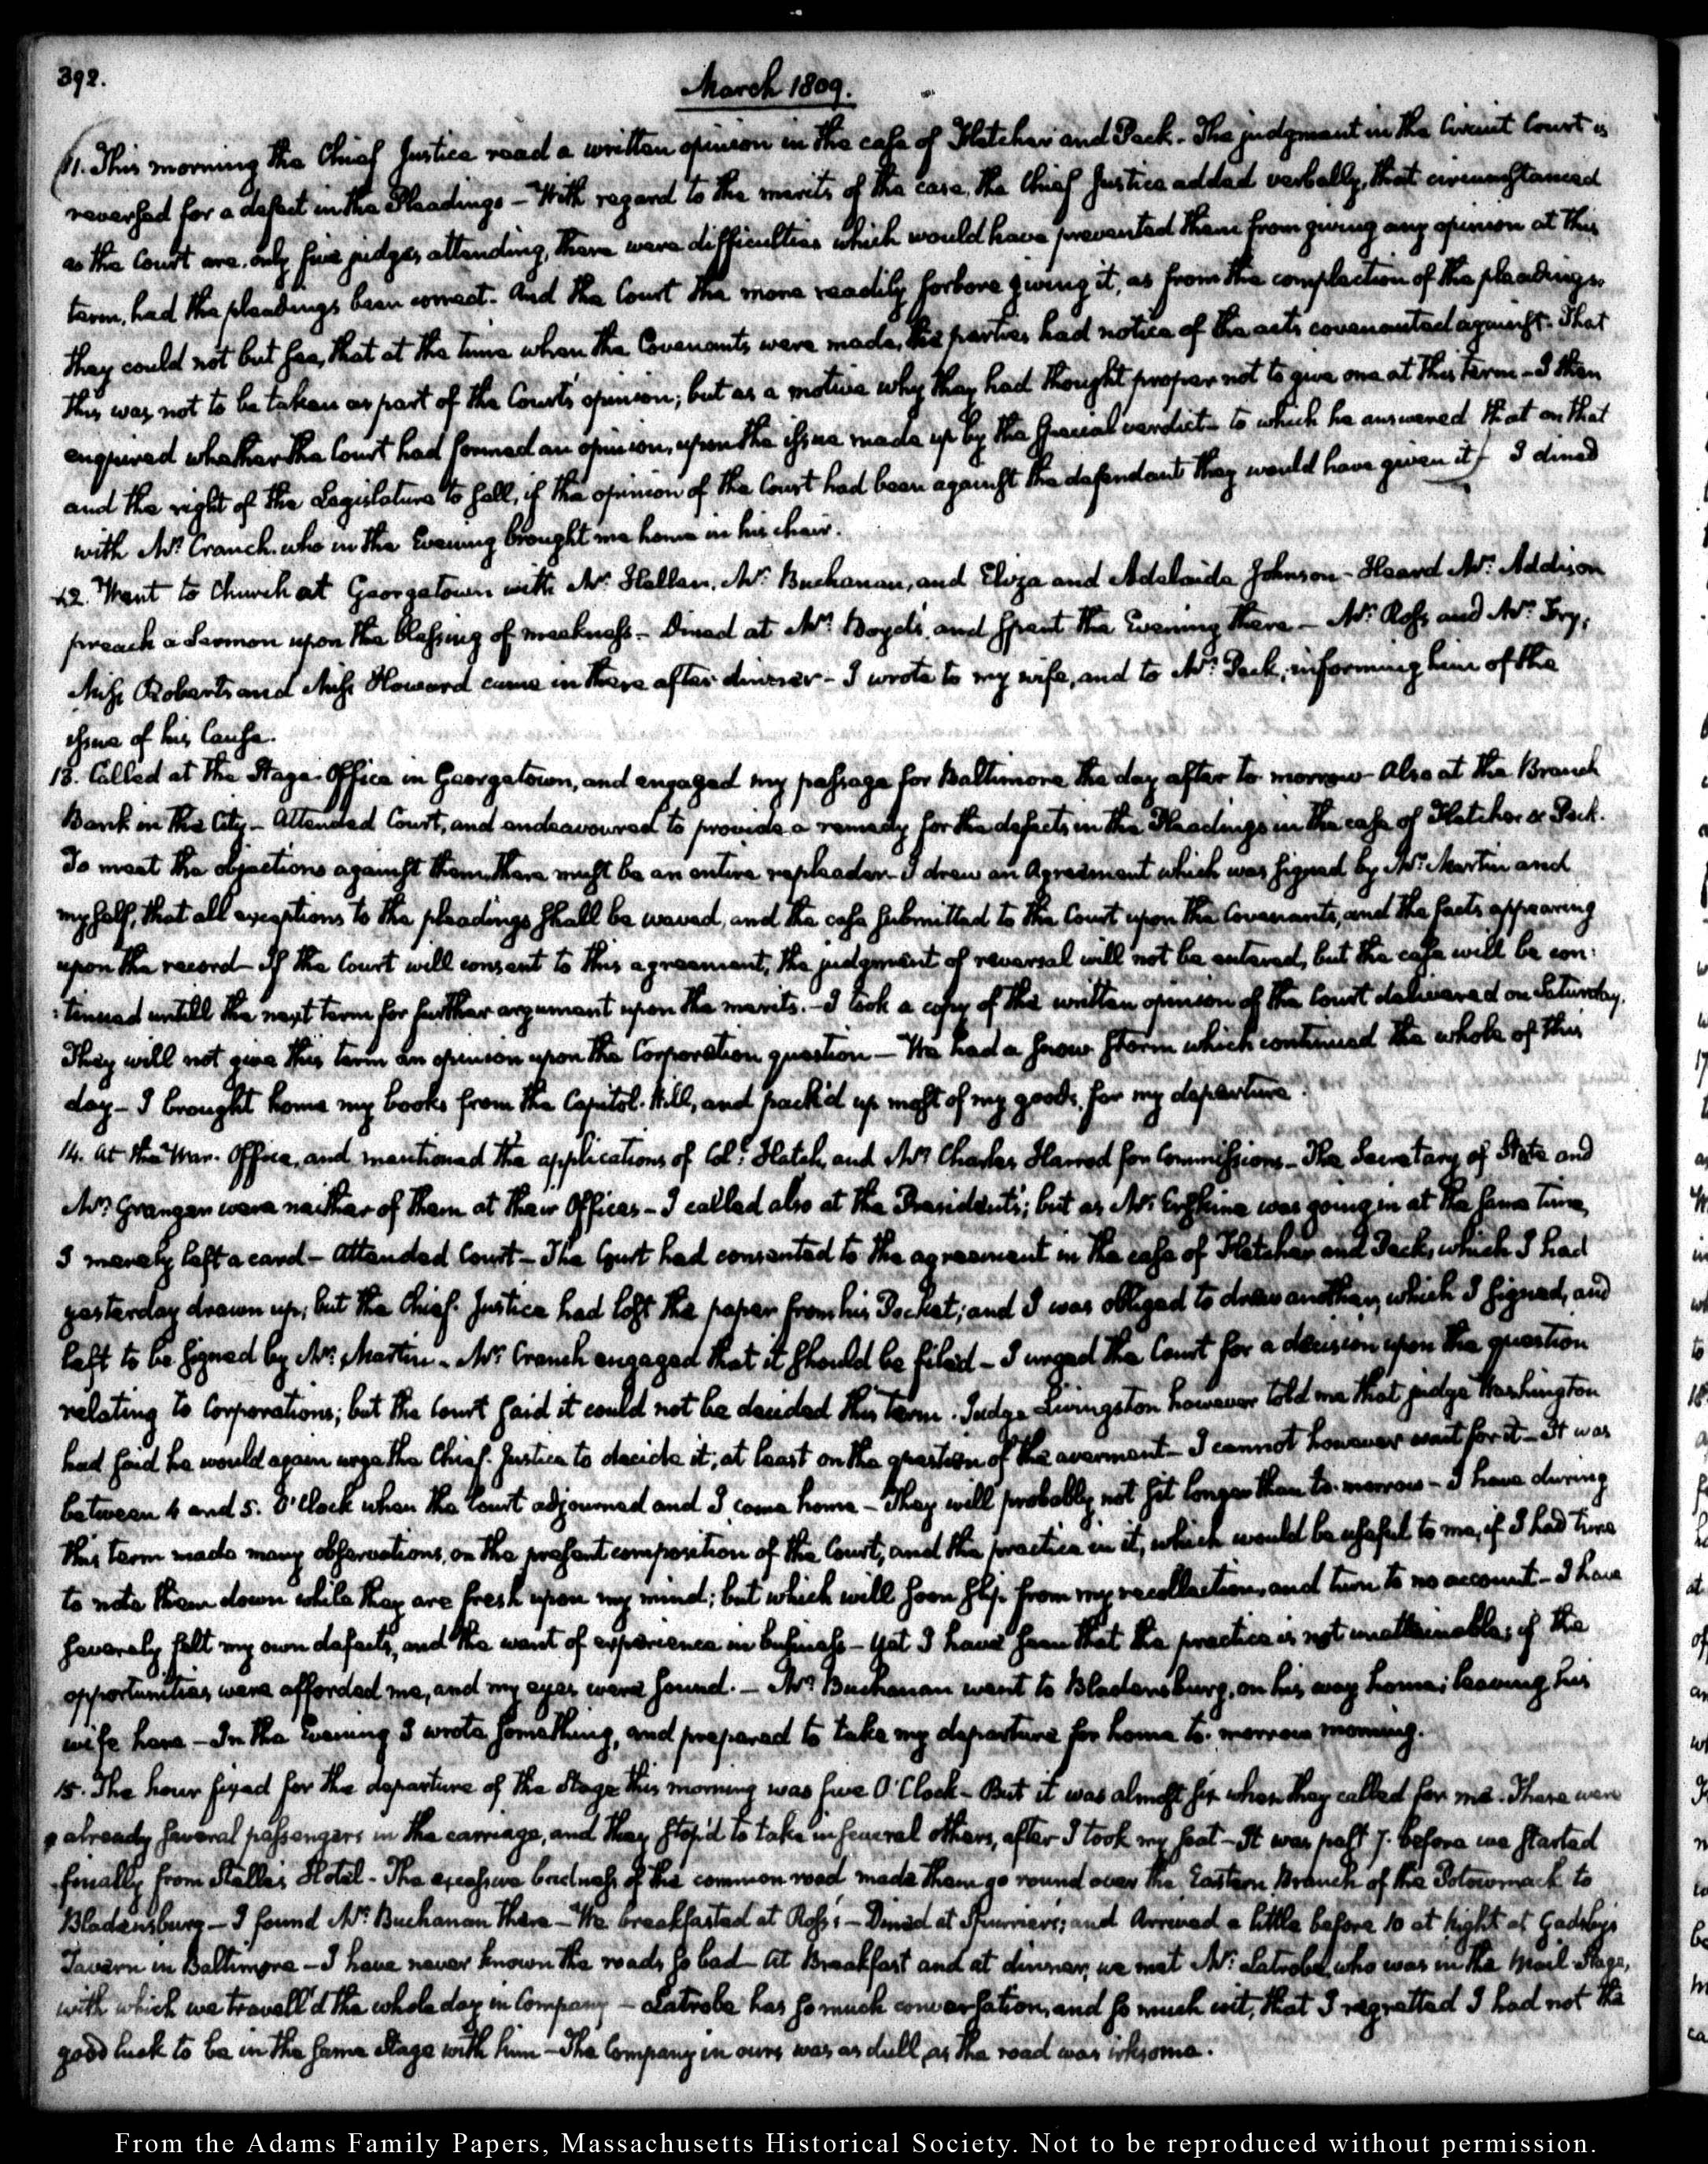 392.
March 1809.
11. This morning the Chief Justice read a written opinion in the case of Fletcher and Peck. The judgment in the Circuit Court is
reversed for a defect in the Pleadings - With regard to the merits of the case, the Chief Justice added verbally, that circumstanced
as the Court are, only five judges attending, there were difficulties which would have prevented them from giving any opinion at this
term, had the pleadings been correct. And the Court the more readily forbore giving it, as from the complection of the pleadings
they could not but see, that at the time when the Covenants were made, the parties had notice of the acts covenanted against. That
this was not to be taken as part of the Court's opinion; but as a motive why they had thought proper not to give one at this term - I then
enquired whether the Court had formed an opinion, upon the issue made up by the special verdict - to which he answered that on that
and the right of the Legislature to sell, if the opinion of the Court had been against the defendant they would have given it) I dined
with Mr. Cranch who in the Evening brought me home in his chair.
12. Went to Church at Georgetown with Mr. Hellen, Mr. Buchanan, and Eliza and Adelaide Johnson - Heard Mr. Addison
preach a Sermon upon the blessing of meekness - Dined at Mr. Boyd's, and spent the Evening there - Mr. Ross and Mr. Fry,
Miss Roberts and Miss Howard came in there after dinner - I wrote to my wife, and to Mr. Peck, informing him of the
issue of his Cause.
13. Called at the Stage-Office in Georgetown, and engaged my passage for Baltimore the day after to morrow - Also at the Branch
Bank in the City - Attended Court, and endeavoured to provide a remedy for the defects in the Pleadings in the case of Fletcher & Peck.
To meet the objections against them there must be an entire repleader - I drew an Agreement which was signed by Mr. Martin and
myself, that all exceptions to the pleadings shall be waved, and the case submitted to the Court upon the Covenants, and the facts appearing
upon the record - If the Court will consent to this agreement, the judgment of reversal will not be entered, but the case will be con:
:tinued untill the next term for further argument upon the merits. - I took a copy of the written opinion of the Court delivered on Saturday.
They will not give this term an opinion upon the Corporation question - We had a snow storm which continued the whole of this
day - I brought home my books from the Capitol-Hill, and pack'd up most of my goods, for my departure.
14. At the War-Office, and mentioned the applications of Coll. Hatch, and Mr. Charles Harrod for Commissions - The Secretary of State and
Mr. Granger were neither of them at their Offices - I called also at the President's; but as Mr. Erskine was going in at the same time,
I merely left a card - Attended Court - The Court had consented to the agreement in the case of Fletcher and Peck, which I had
yesterday drawn up; but the Chief-Justice had lost the paper from his Pocket; and I was obliged to draw another, which I signed, and
left to be signed by Mr. Martin. Mr. Cranch engaged that it should be filed - I urged the Court for a decision upon the question
relating to Corporations; but the Court said it could not be decided this term. Judge Livingston however told me that judge Washington
had said he would again urge the Chief-Justice to decide it; at least on the question of the averment - I cannot however wait for it - It was
between 4 and 5. O'Clock when the Court adjourned and I came home - They will probably not sit longer than to-morrow - I have during
this term made many observations, on the present composition of the Court, and the practice in it, which would be useful to me, if I had time
to note them down while they are fresh upon my mind; but which will soon slip from my recollection, and turn to no account - I have
severely felt my own defects, and the want of experience in business - Yet I have seen that the practice is not unattainable; if the
opportunities were afforded me, and my eyes were sound. - Mr. Buchanan went to Bladensburg, on his way home; leaving his
wife here - In the Evening I wrote something, and prepared to take my departure for home to-morrow morning.
15. The hour fixed for the departure of the Stage this morning was five O'Clock - But it was almost six when they called for me. There were
already several passengers in the carriage, and they stop'd to take in several others, after I took my seat - It was past 7. before we started
finally from Stelle's Hotel - The excessive badness of the common road made them go round over the Eastern Branch of the Potowmack to
Bladensburg - I found Mr. Buchanan there - We breakfasted at Ross's - Dined at Spurrier's; and Arrived a little before 10 at Night at Gadsby's
Tavern in Baltimore - I have never known the roads so bad - At Breakfast and at dinner, we met Mr. Latrobe, who was in the Mail-Stage,
with which we travell'd the whole day in Company - Latrobe has so much conversation, and so much wit, that I regretted I had not the
good luck to be in the same Stage with him - The Company in ours was as dull, as the road was irksome.
From the Adams Family Papers, Massachusetts Historical Society. Not to be reproduced without permission.